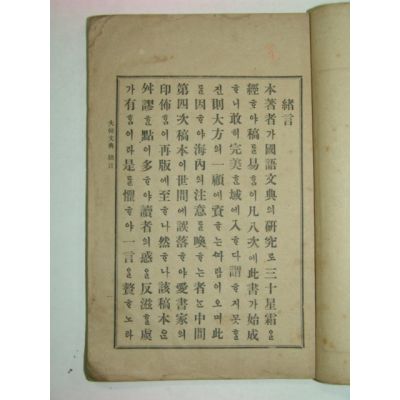 緖言
本著者가國語文典의硏究로三十星霜을
經ᄒᆞ야稿를易ᄒᆞᆷ이凡八次에此書가始成
ᄒᆞ니敢히完美ᄒᆞᆫ域에入ᄒᆞ다謂ᄒᆞ지못ᄒᆞᆯ
진則大方의一顧에資ᄒᆞ는바람이오며此
를因ᄒᆞ야海內의注意를喚ᄒᆞ는者는中間
第四次稿本이世間에誤落ᄒᆞ야愛書家의
印佈ᄒᆞᆷ이再版에至ᄒᆞ나然ᄒᆞ나該稿本은
舛謬ᄒᆞᆫ點이多ᄒᆞ야讀者의惑을反滋ᄒᆞᆯ虞
가有ᄒᆞᆷ이라是를懼ᄒᆞ야一言을贅ᄒᆞ노라
大韓文典 緖言